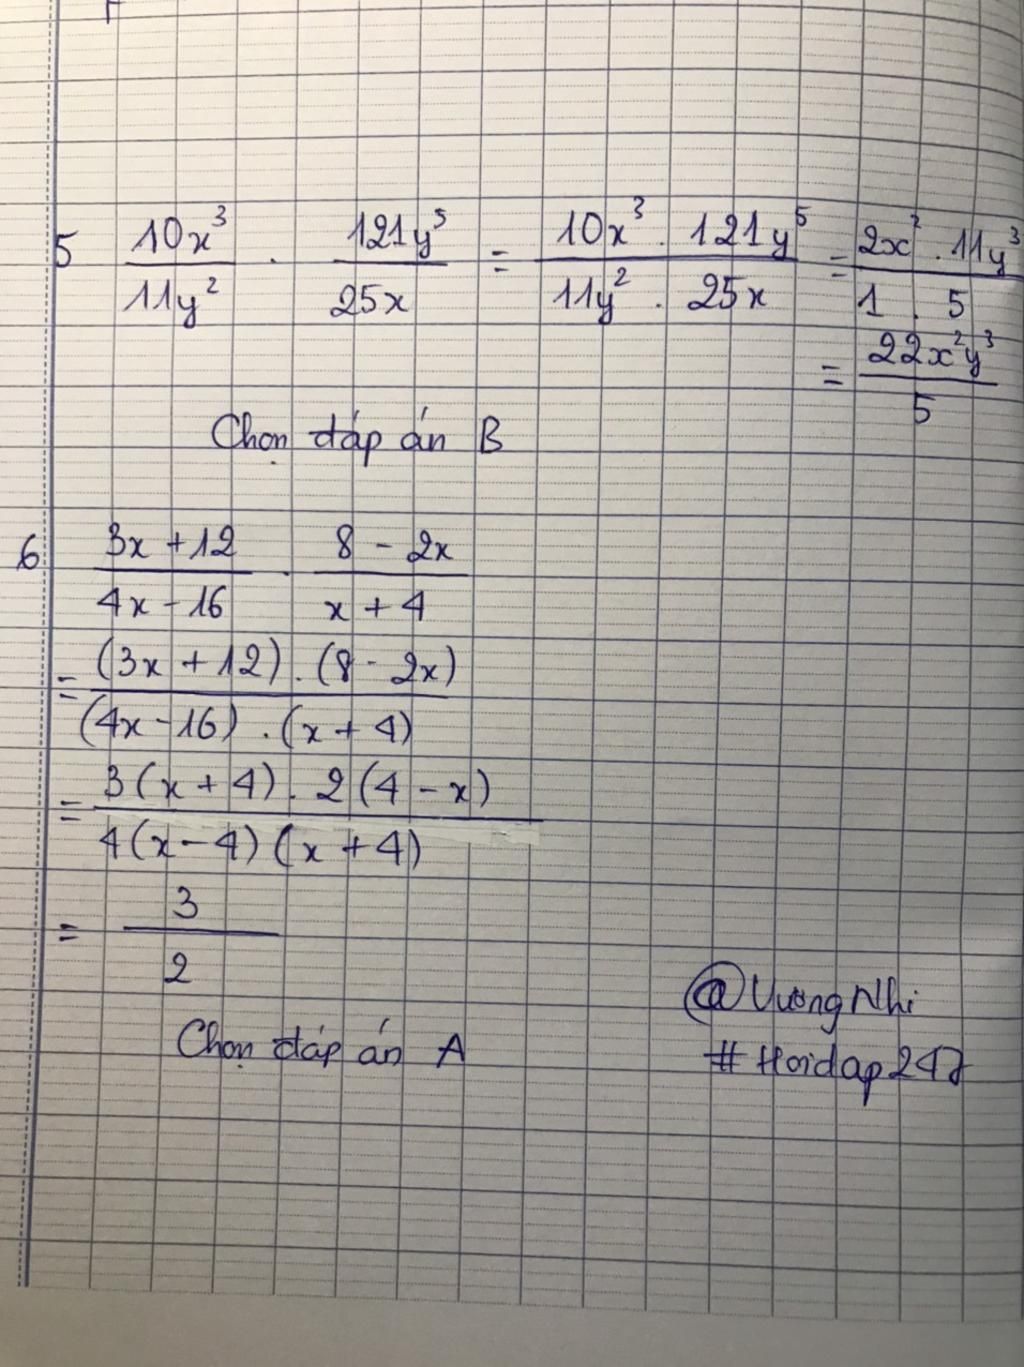 5 10x³/11y² . 121y⁵/25x = 10x³ . 121y⁵/11y² . 25x = 2x² . 11y³/1 . 5
= 22x²y³/5
Chọn đáp án B
6 3x + 12/4x - 16 . 8 - 2x/x + 4
= (3x + 12) . (8 - 2x)/(4x - 16) . (x + 4)
= 3(x + 4) . 2(4 - x)/4(x - 4)(x + 4)
= 3/2
@VươngNhi
Chọn đáp án A
#Hoidap247